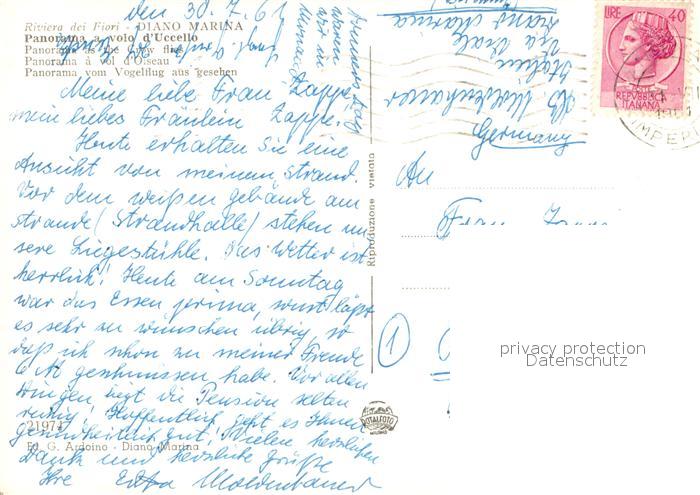 den 30.7.61
Riviera dei Fiori - DIANO MARINA
Panorama a volo d'Uccello
Panorama as the Crow flies
Panorama à vol d'Oiseau
Panorama vom Vogelflug aus gesehen
Meine liebe Frau Zappe,
mein liebes Fräulein Zappe.
Heute erhalten Sie eine
Ansicht von meinem Strand.
Vor dem weißen gebäude am
Strande (Strandhalle) stehen un
sere Liegestühle. Das Wetter ist
herrlich! Heute am Sonntag
war das Essen prima, sonst läßt
es sehr zu wünschen übrig, so
daß ich schon zu meiner Freude
6 M geschmissen habe. Vor allen
Dingen liegt die Pension selten
ruhig! Hoffentlich geht es Ihnen
gesundheitlich gut. Vielen herzlichen
Dank und herzliche Grüße
Ihre Moldenhauer
21974
Ed. G. Ardoino - Diano Marina
waren
wir in
Riproduzione vietata
Moldenhauer
Italien
Diano Marina
Germany
An
Frau
1
TOTALFOTO
MILANO
LIRE 40
REPVBBLICA
ITALIANA
IMPERI
privacy protection
Datenschutz